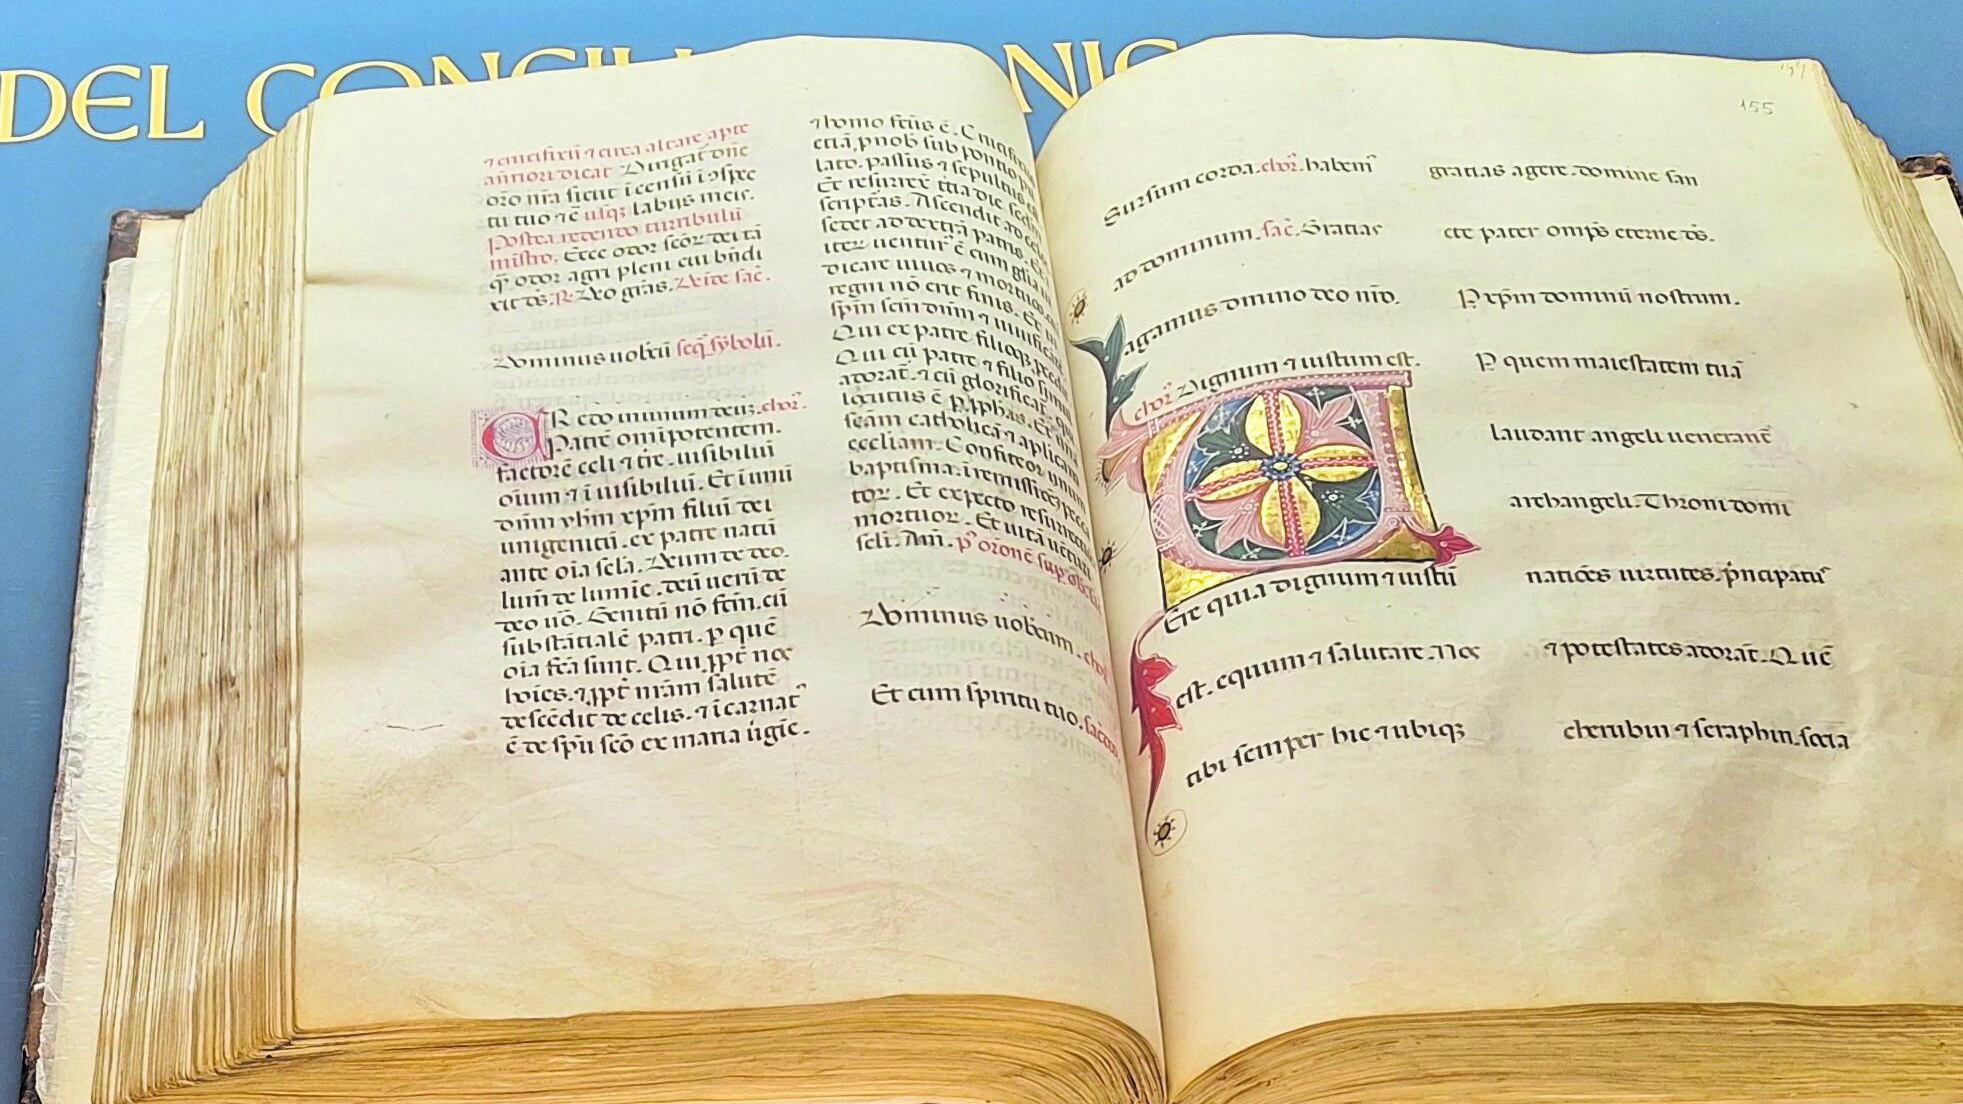 DEL CONCILI NIC
155
⁊ crucifixũ ⁊ circa altare apte
añiori dicat Dirigat᷑ dñe
orõ mĩa sicut ĩ censũ ĩ ꝯspec
tu tuo ⁊c̃ usqꝫ labijs meis.
Postea redendo turribulũ
mĩstro. Ecce odor scõꝝ dei tã
q̃ odor agri pleni cui bñdi
xit ds̃. ℟. Deo grãs. Deĩde sac̃.
Dominus uobcũ seq̃ sỹbolũ.
CRedo in unum deuꝫ. chor᷑.
Patrẽ omĩpotentem.
factorẽ celi ⁊ tr̃e. uisibiliũ
oĩum ⁊ ĩ uisibiliũ. Et ĩ unũ
dñm yhm xp̃m filiũ dei
unigenitũ. ex patre natũ
ante oĩa scĩa. Deum de deo.
lum̃ de lumĩe. deũ uerũ de
deo uõ. Genitũ nõ fc̃m. cũ
substãtialẽ patri. ꝑ quẽ
oĩa fc̃a sunt. Qui ꝓpt̃ nos
hoĩes. ⁊ ꝓpt̃ nr̃am salutẽ
descẽdit de celis. ⁊ ĩcarnat᷑
ẽ de sp̃u scõ ex maria ũgĩe.
⁊ homo fc̃us ẽ. Crucifi
etiã, ꝑ nob̃ sub pontio, pi
lato. passus ⁊ sepultus
Et resurrex̃ tr̃ia die sc̃dm
scriptas. Ascendit ad celu
sedet ad dextrã patris. Et
iteꝝ uentur᷑ ẽ cum gl̃ia
dicare uiuos ⁊ mortuos.
regni nõ erit finis. Et in
sp̃m sc̃m dñm ⁊ uiuificãt
Qui ex patre filioqꝫ, ꝓced
Qui cũ patre ⁊ filio simul
adorat᷑. ⁊ cũ glorificat᷑. qui
locutus ẽ ꝑ, ꝓphas. Et unã
sc̃am catholicã ⁊ aplicam
eccliam. Confiteor unum
baptisma. ĩ remissiõẽ, pecca
toꝝ. Et expecto resurrecti
mortuoꝝ. Et uitã uẽturi
scli. Am̃. p᷑ orõnẽ suꝑ oblata
Dominus uobcum. chor᷑
Et cum spiritu tuo. sac̃do
Sursum corda. chor᷑. habem᷑
ad dominum. sac̃. Gratias
agamus domino deo nr̃o.
chor᷑ Dignum ⁊ iustum est.
Ere quia dignum ⁊ iustũ
est. equum ⁊ salutare. Nos
tibi semper hic ⁊ ubiqꝫ
gratias agere. domine san
cte pater omp̃s eterne ds̃.
P xp̃m dominũ nostrum.
P quem maiestatem tuã
laudant angeli uenerant̃
archangeli. Throni domi
natiões uirtutes. p̃ncipatus᷑
⁊ potestates adorãt. Quẽ
cherubin ⁊ seraphin. socia